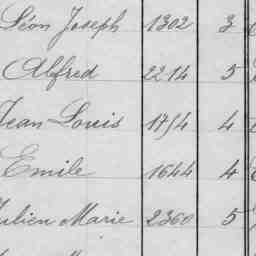 Léon Joseph 1302 3
Alfred 2214 5
Jean Louis 1754 4
Emile 1644 4
Julien Marie 2360 5